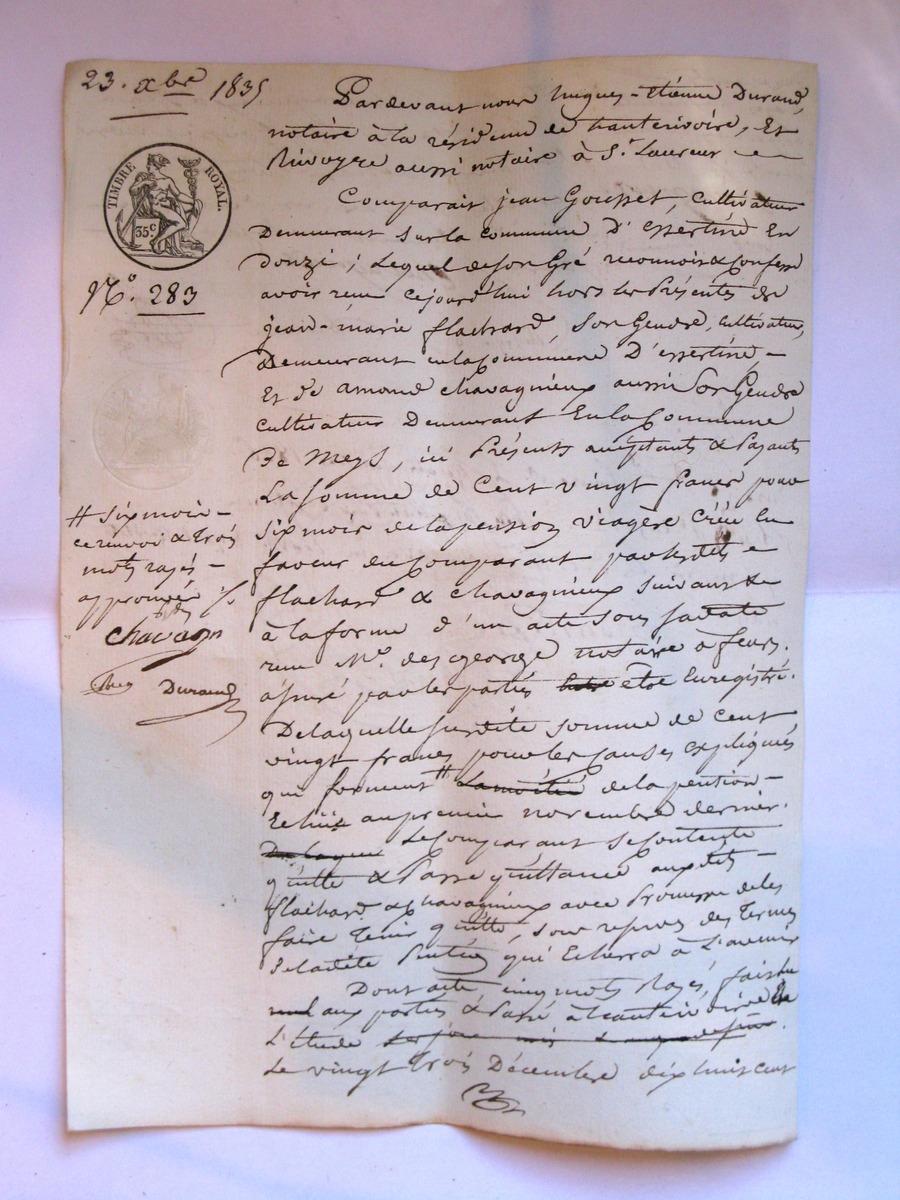 23. xbre 1835
Pardevant nous hugues-étienne Durand,
notaire à la résidence de hauterivoire, Et
Rivoyre aussi notaire à St. Laurent
TIMBRE ROYAL.
35c
No. 283
Comparait jean Gousset, cultivateur
Demeurant sur la commune D'essertine En
Donzi ; Lequel de son Gré reconnoit & Confesse
avoir reçu cejourd'hui hors les Présentes de
jean-marie flachard, son Gendre, cultivateur,
Demeurant en la Commune D'essertine,
Et de amond chavagnieux aussi son Gendre
cultivateur Demeurant En la Commune
De Meys, ici Présents acceptants & Payants
La somme de Cent vingt francs pour
six mois de la pension viagère créée en
faveur du Comparant par lesdits
flachard & chavagnieux suivant &
à la forme d'un acte sous sa date
reçu Me. des george notaire à feurs.
assuré par les parties être Enregistré.
De laquelle susdite somme de cent
vingt francs pour les causes expliquées
qui forment # la moitié de la pention
Echue au premier novembre dernier.
De laquel Le comparant se contente
quitte & Passe quittance auxdits
flachard & chavagnieux avec Promesse de les
faire Tenir quitte, sous reserves des Termes
De ladite Pention qui Echerra à L'avenir
Dont acte cinq mots Rayés, fait lu
aux parties & Passé à hauterivoire En
L'étude
Le vingt trois Décembre dix huit cent
# six mois
ce renvoi & trois
mots rayés
approuvés
chavagn
Durand